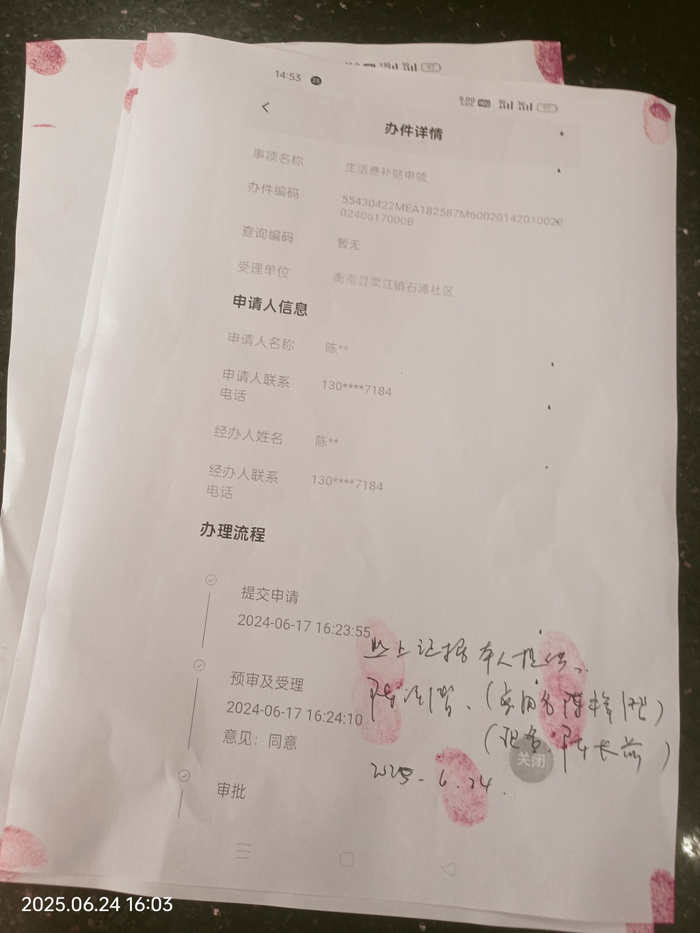 14:53
办件详情
事项名称 生活费补贴申领
办件编码 55430422MEA182587M60020142010020
0240617000B
查询编码 暂无
受理单位 衡南县栗江镇石滩社区
申请人信息
申请人名称 陈**
申请人联系 130****7184
电话
经办人姓名 陈**
经办人联系 130****7184
电话
办理流程
提交申请
2024-06-17 16:23:55
预审及受理
2024-06-17 16:24:10
意见：同意
审批
以上证据本人提供、
关闭
2025-6.24.
2025.06.24 16:03